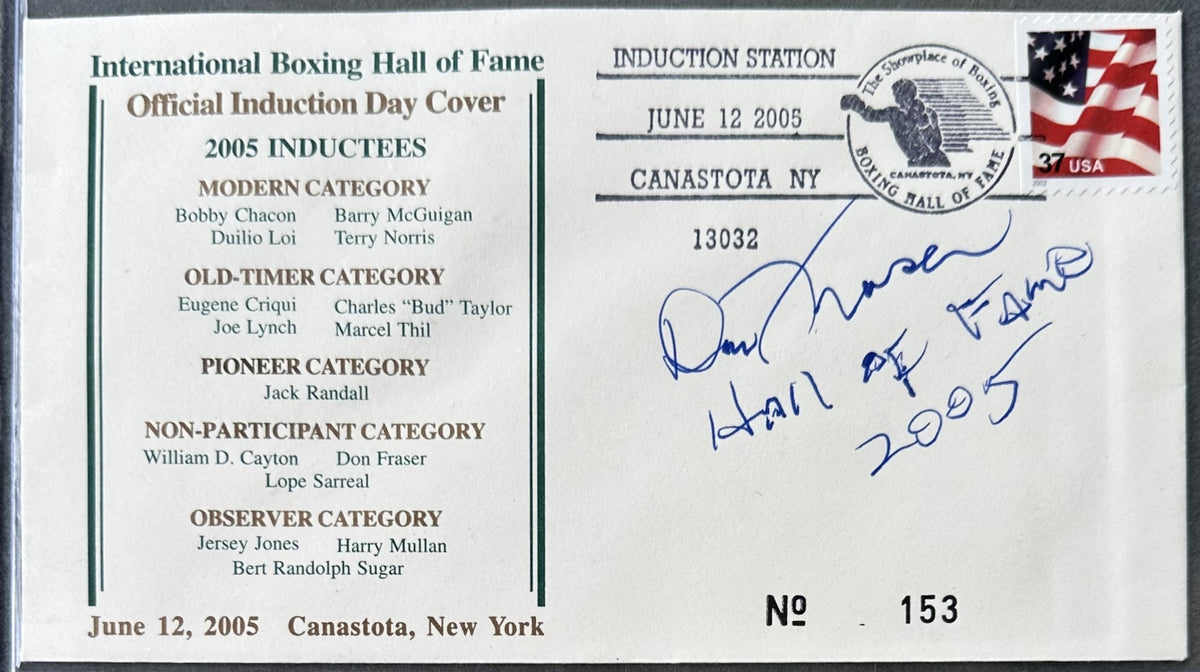 International Boxing Hall of Fame
Official Induction Day Cover
2005 INDUCTEES
MODERN CATEGORY
Bobby Chacon Barry McGuigan
Duilio Loi Terry Norris
OLD-TIMER CATEGORY
Eugene Criqui Charles “Bud” Taylor
Joe Lynch Marcel Thil
PIONEER CATEGORY
Jack Randall
NON-PARTICIPANT CATEGORY
William D. Cayton Don Fraser
Lope Sarreal
OBSERVER CATEGORY
Jersey Jones Harry Mullan
Bert Randolph Sugar
June 12, 2005 Canastota, New York
INDUCTION STATION
JUNE 12 2005
CANASTOTA NY
13032
The Showplace of Boxing
CANASTOTA, NY
BOXING HALL OF FAME
37 USA
2002
Don Fraser
HAll OF FAME
2005
Nº 153